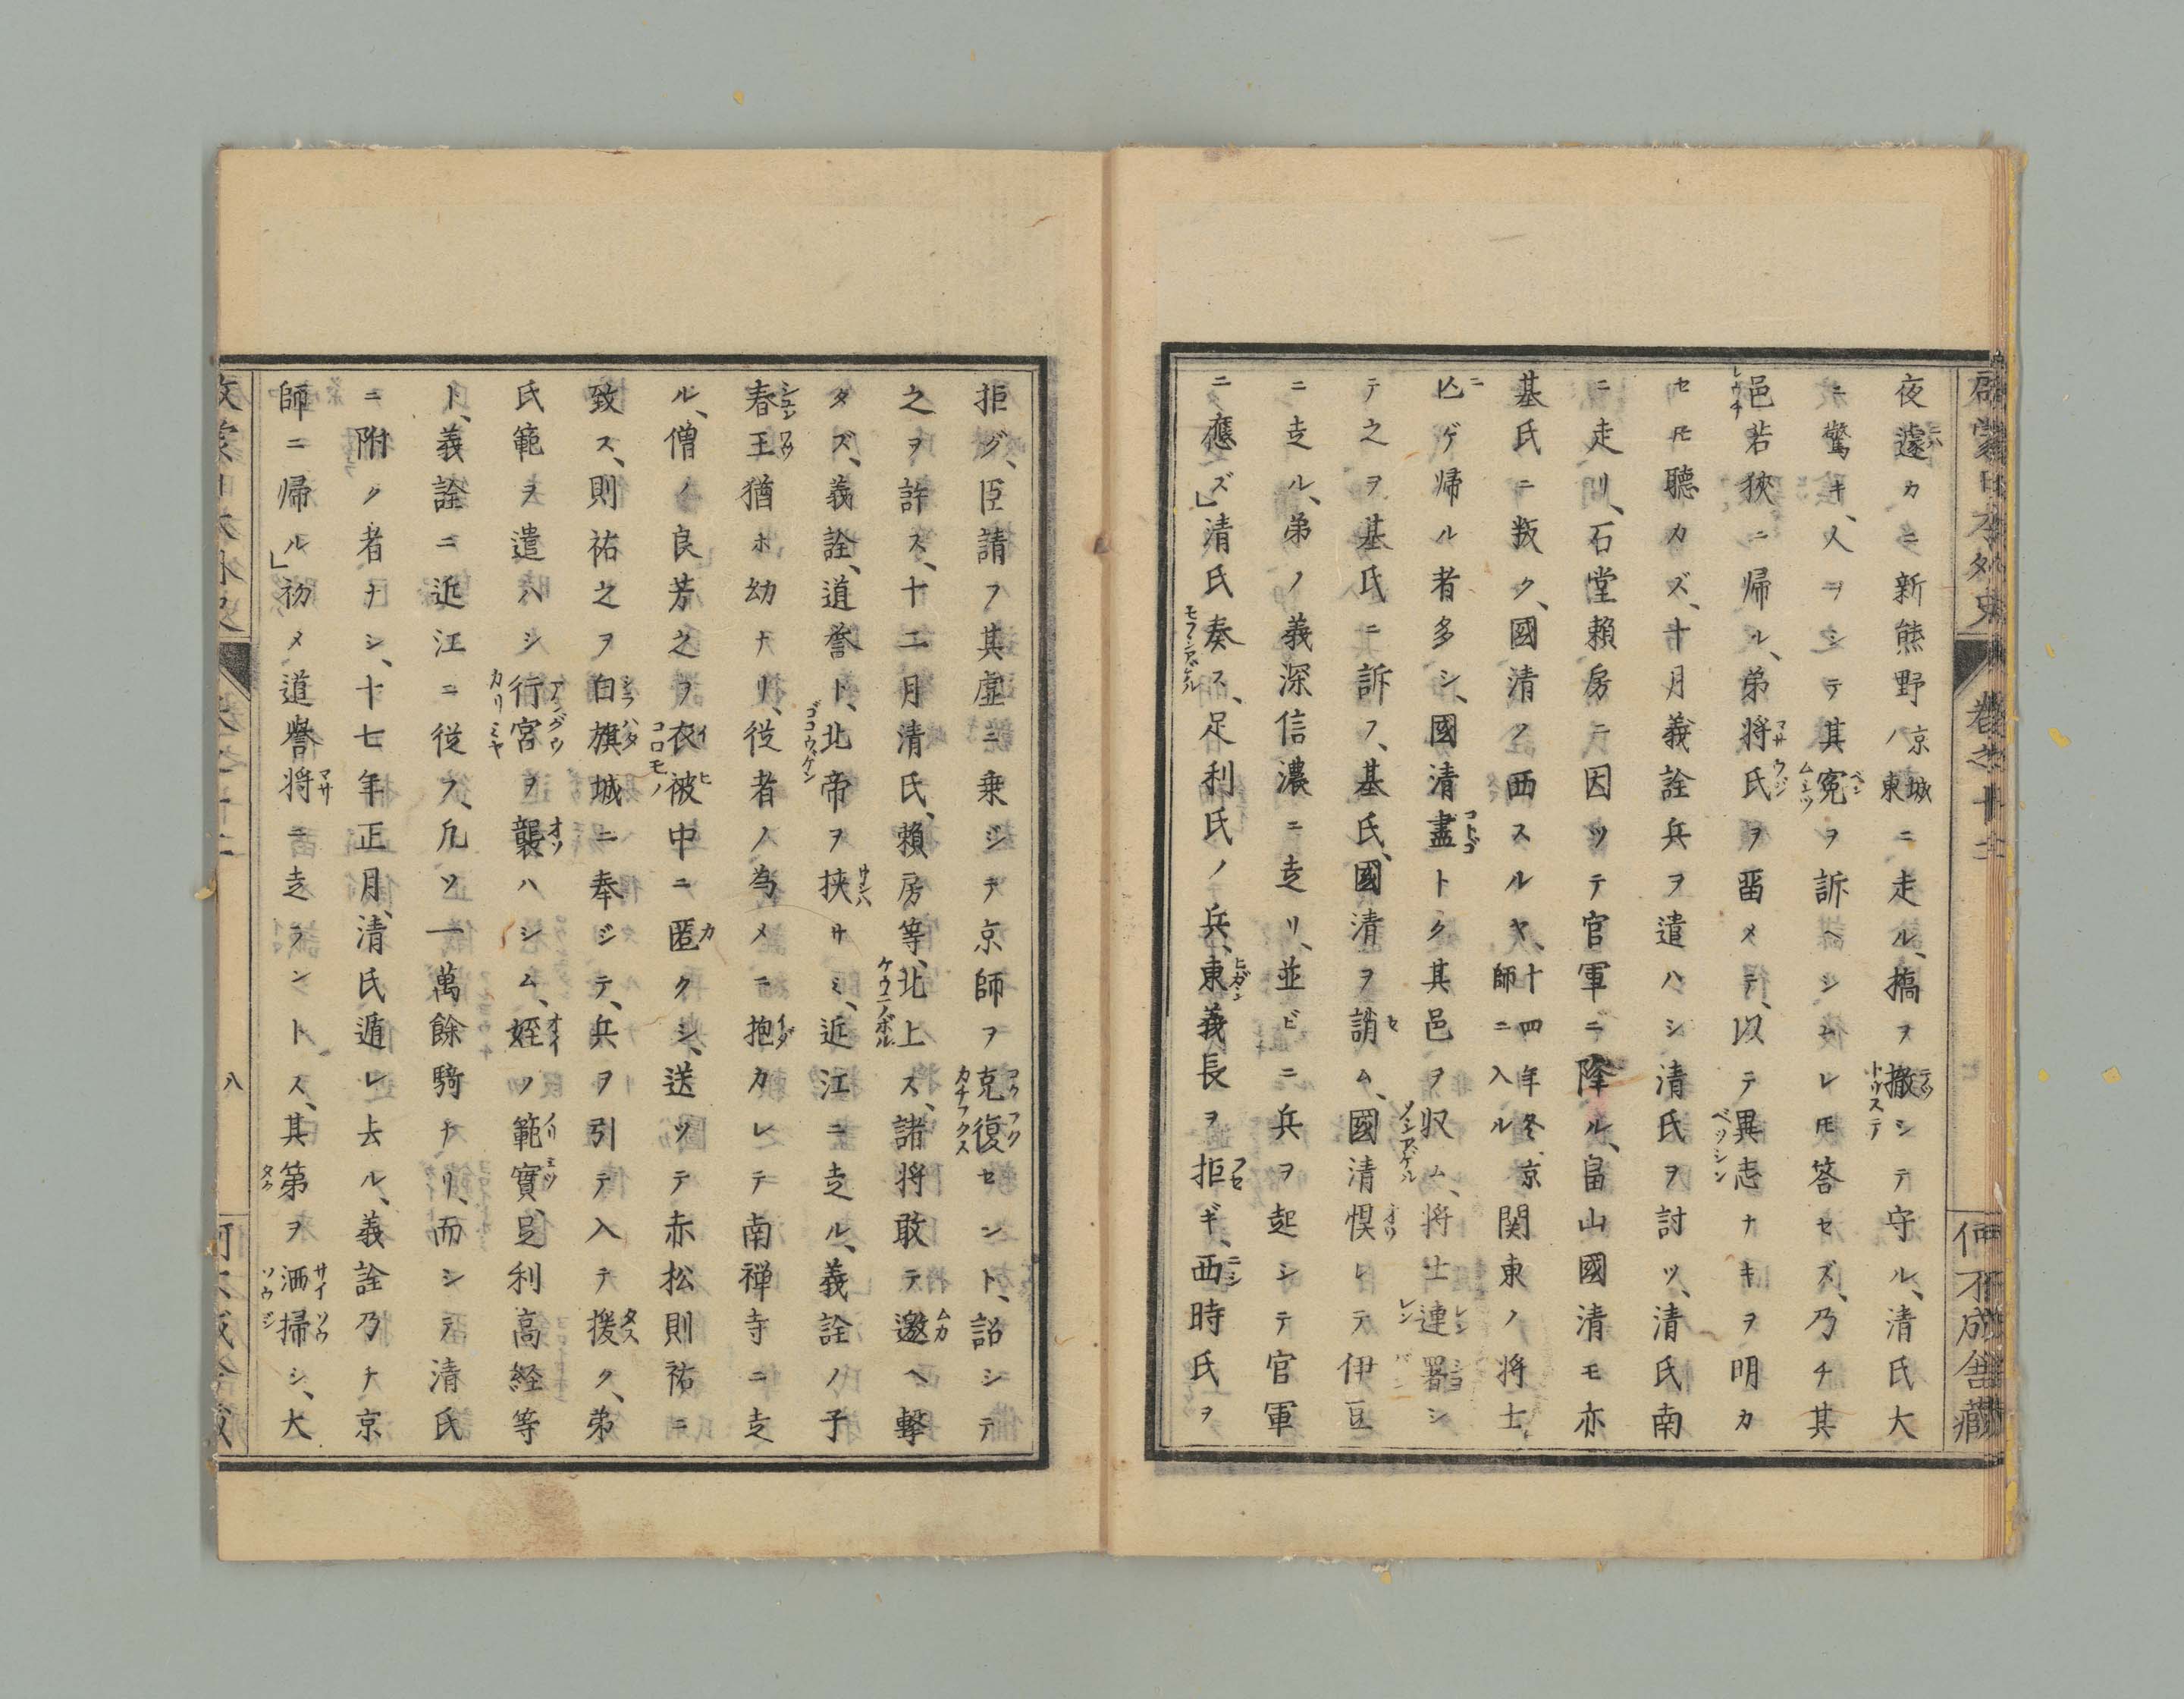 啓蒙日本外史 巻之十二 何不成舎蔵
夜遽カニ新熊野ノ京城東ニ走ル、橋ヲ撤シテ守ル、清氏大
ニ驚キ、人ヲシテ其冤ヲ訴ヘシムレ𪜈答セズ、乃チ其
邑若狹ニ帰ル、弟将氏ヲ畱メテ、以テ異志ナキヲ明カ
セ𪜈聽カズ、十月義詮兵ヲ遣ハシ清氏ヲ討ツ、清氏南
ニ走リ、石堂頼房ニ因ツテ官軍ニ降ル、畠山國清モ亦
基氏ニ叛ク、國清ノ西スルヤ、十四年冬京師ニ入ル関東ノ将士
亡ゲ帰ル者多シ、國清盡トク其邑ヲ収ム、将士連署シ
テ之ヲ基氏ニ訴フ、基氏國清ヲ誚ム、國清惧レテ伊豆
ニ走ル、弟ノ義深信濃ニ走リ、並ビニ兵ヲ起シテ官軍
ニ應ズ」清氏奏ス、足利氏ノ兵、東義長ヲ拒ギ、西時氏ヲ
拒グ、臣請フ其虚ニ乗シテ京師ヲ克復セント、詔シテ
之ヲ許ス、十二月清氏、頼房等、北上ス、諸将敢テ邀ヘ撃
タズ、義詮、道誉ト、北帝ヲ挾サミ、近江ニ走ル、義詮ノ子
春王猶ホ幼ナリ、従者ノ為メニ抱カレテ南禅寺ニ走
ル、僧ノ良芳之ヲ衣被中ニ匿クシ、送ツテ赤松則祐ニ
致ス、則祐之ヲ白旗城ニ奉ジテ、兵ヲ引テ入テ援ク、弟
氏範ヲ遣ハシ行宮ヲ襲ハシム、姪ノ範實、足利高経等
ト、義詮ニ近江ニ従フ、凡ソ一萬餘騎ナリ、而シテ清氏
ニ附ク者ナシ、十七年正月、清氏遁レ去ル、義詮乃チ京
師ニ帰ル」初メ道譽将ニ走ラントス、其第ヲ洒掃シ、大
八